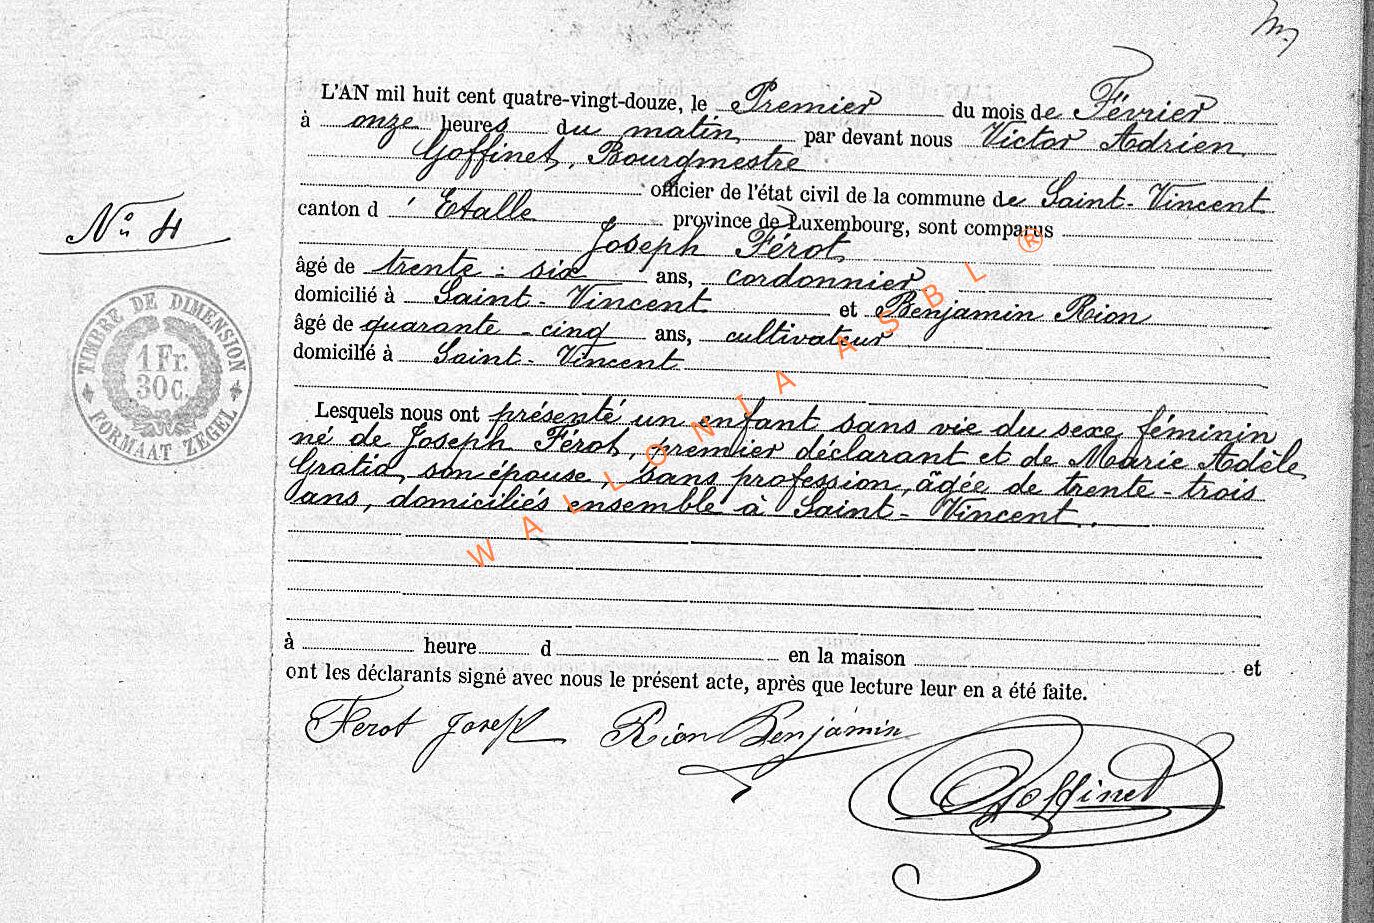 L'AN mil huit cent quatre-vingt-douze, le Premier du mois de Février
à onze heures du matin, par devant nous Victor Adrien
Goffinet, Bourgmestre
officier de l'état civil de la commune de Saint-Vincent
canton d'Etalle province de Luxembourg, sont comparus
Joseph Férot,
âgé de trente-six ans, cordonnier
domicilié à Saint-Vincent et Benjamin Rion
âgé de quarante-cinq ans, cultivateur
domicilié à Saint-Vincent
Lesquels nous ont présenté un enfant sans vie du sexe féminin
né de Joseph Férot, premier déclarant et de Marie Adèle
Gratia, son épouse, sans profession, âgée de trente-trois
ans, domiciliés ensemble à Saint-Vincent.
à heure d en la maison et
ont les déclarants signé avec nous le présent acte, après que lecture leur en a été faite.
Ferot Joseph Rion Benjamin
Goffinet
N° 4
TIMBRE DE DIMENSION
1 Fr.
30 C.
FORMAAT ZEGEL
WALLONIA ASBL ®